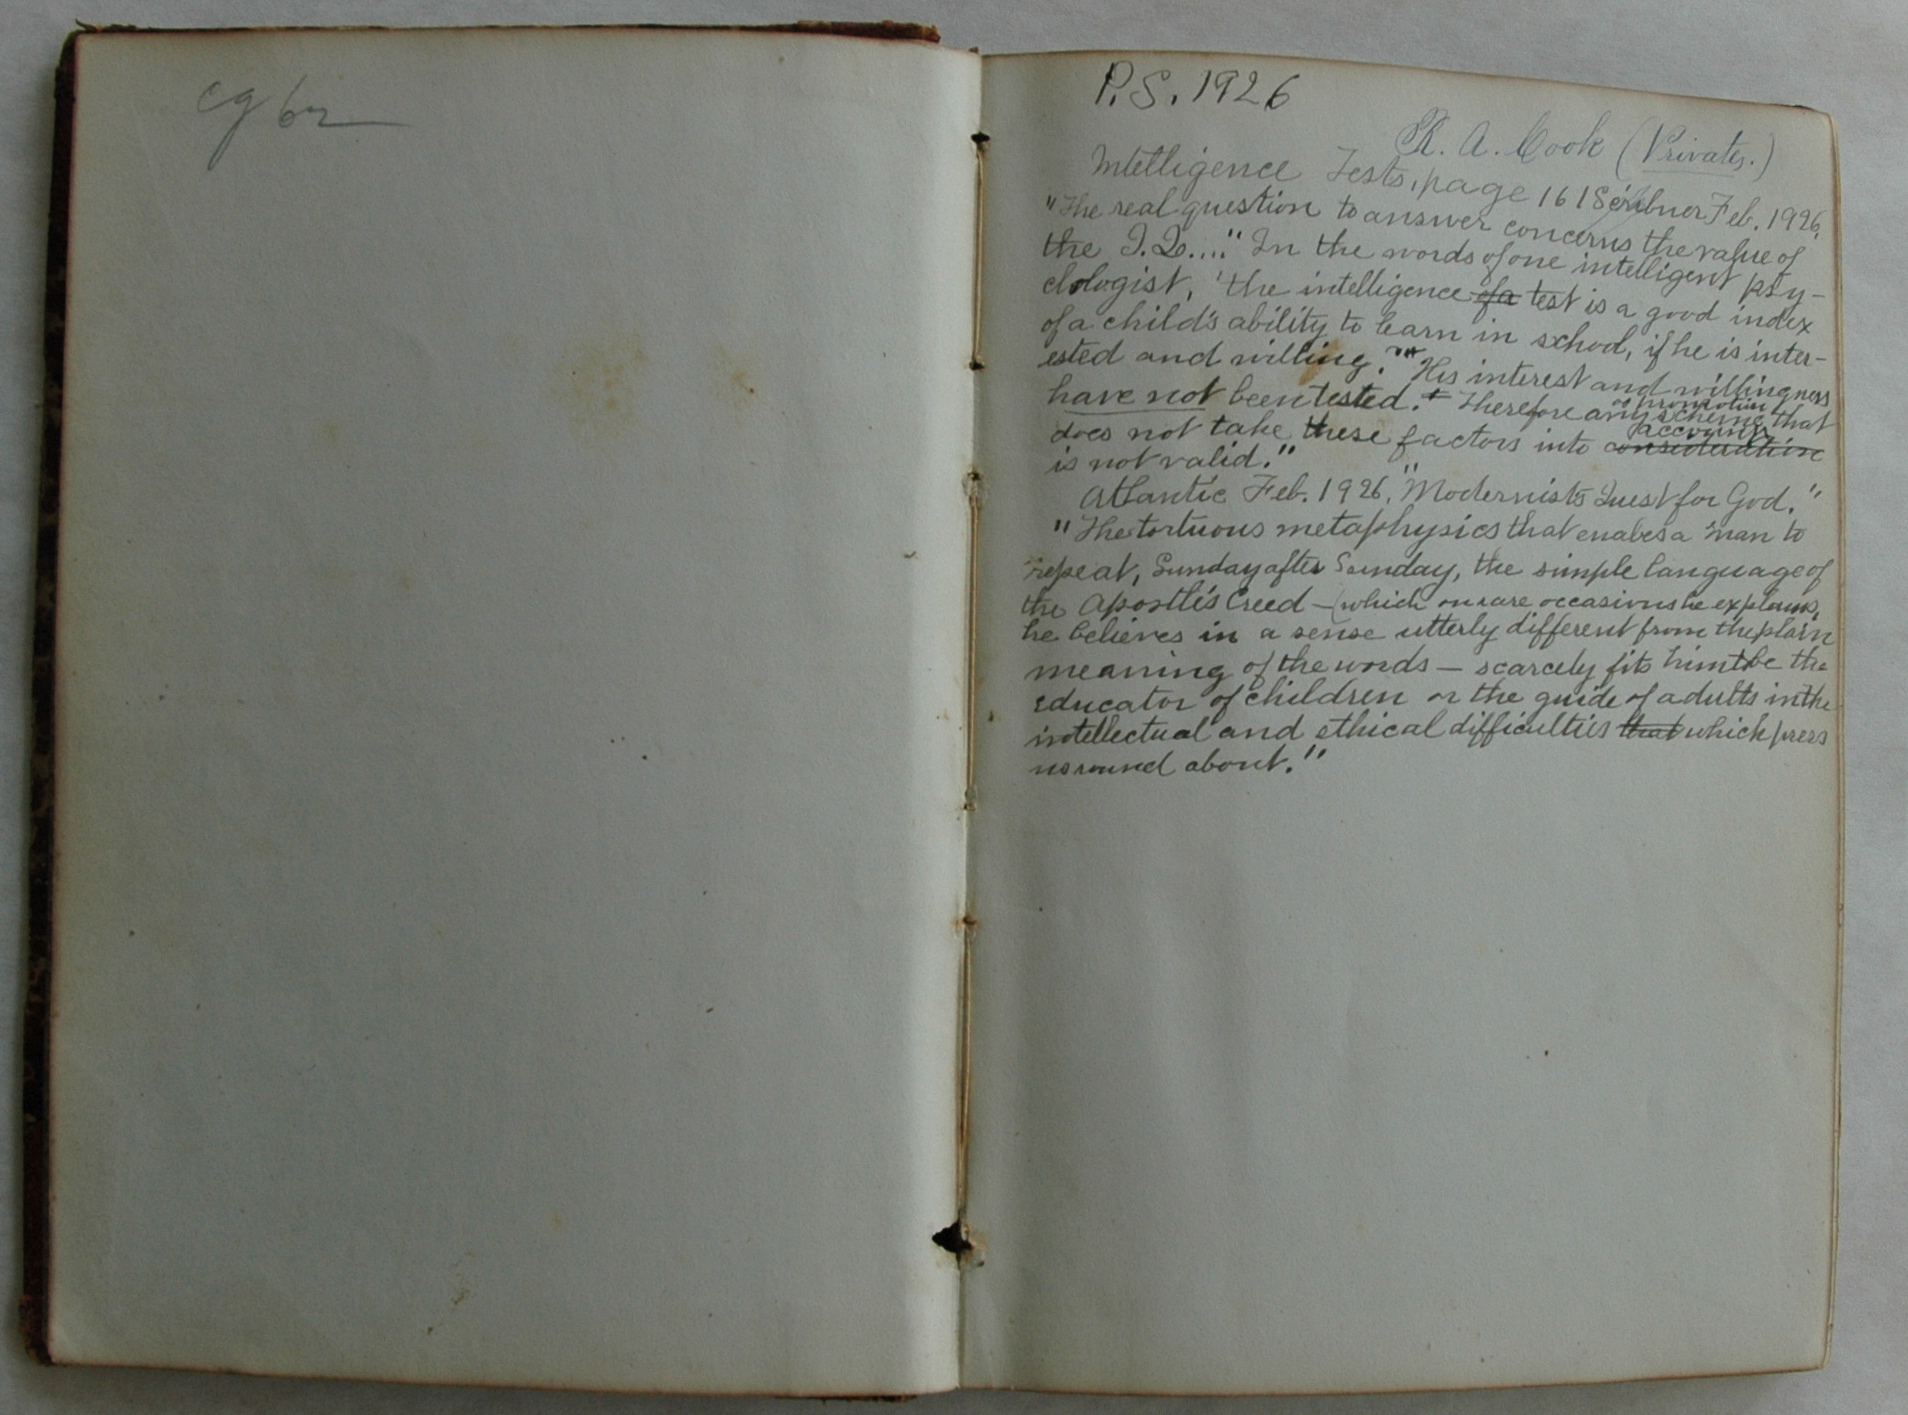 P.S. 1926
R. A. Cook (Private.)
Intelligence Tests, page 161 Scribner Feb. 1926.
"The real question to answer concerns the value of
the I.Q....." In the words of one intelligent psy-
chologist, 'the intelligence of a test is a good index
of a child's ability to learn in school, if he is inter-
ested and willing.'" "His interest and willingness
have not been tested. Therefore any scheme that
of promotion
does not take these factors into consideration
account
is not valid."
Atlantic Feb. 1926, "Modernist's Quest for God."
"The tortuous metaphysics that enabes a man to
repeat, Sunday after Sunday, the simple language of
the Apostle's Creed – (which on rare occasions he explains,
he believes in a sense utterly different from the plain
meaning of the words — scarcely fits him to be the
educator of children or the guide of adults in the
intellectual and ethical difficulties that which press
us round about."